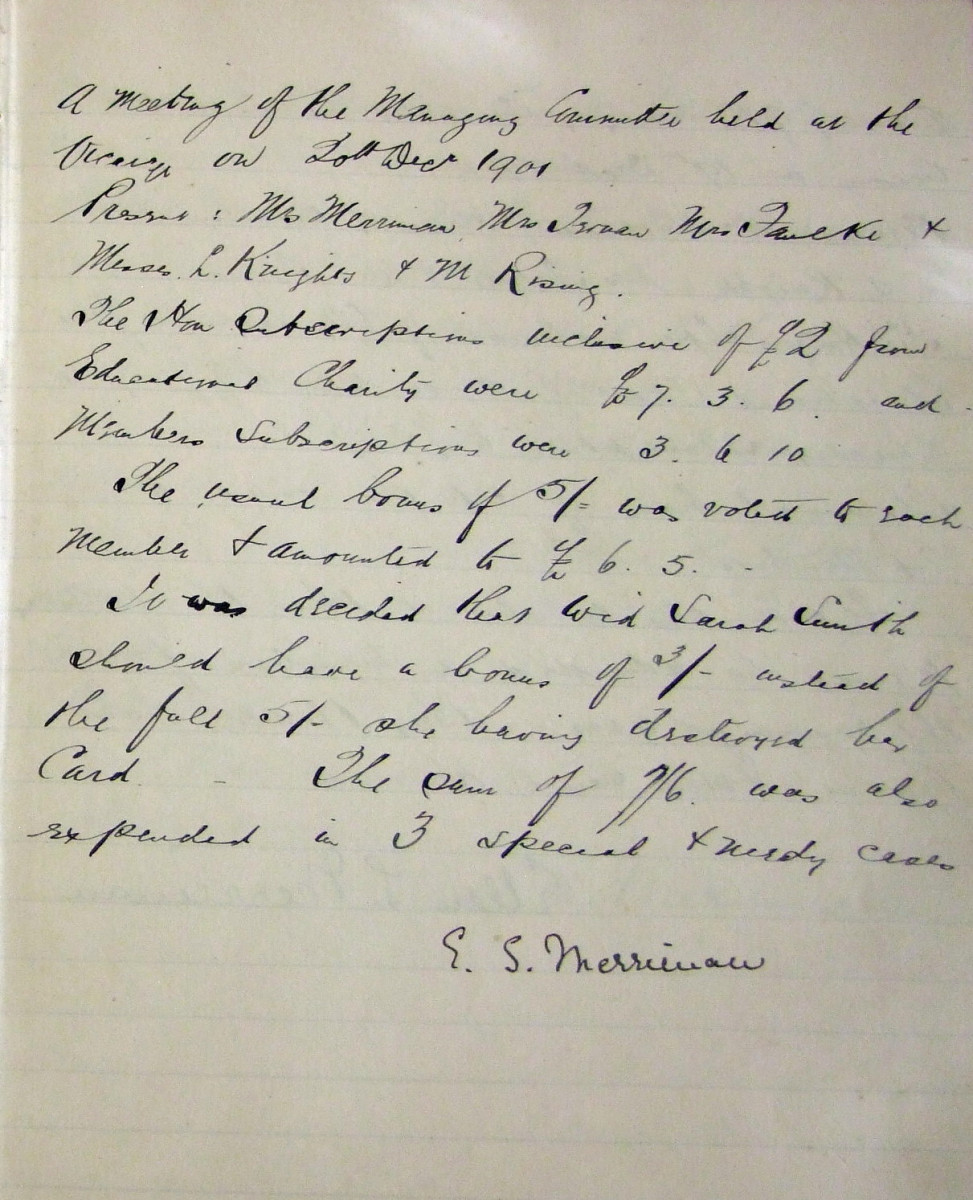 A Meeting of the Managing Committee held at the
Vicarage on 20th Decr 1901
Present : Mrs Merriman, Mrs Mrs Faulke &
Messrs. L. Knights & M Rising.
The Hon Subscriptions inclusive of £2 from
Educational Charity were £7. 3. 6. and
Members Subscriptions were 3. 6 10
The usual bonus of 5/= was voted to each
Member & amounted to £6. 5. -
It was decided that Wid Sarah Smith
should have a bonus of 3/- instead of
the full 5/- she having destroyed her
Card. - The sum of 7/6. was also
expended in 3 special & needy cases
E. S. Merriman